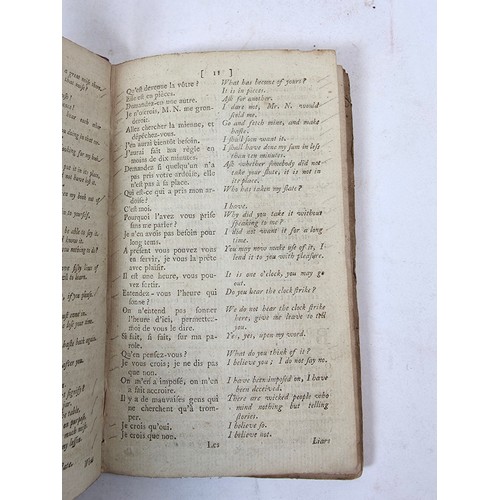 [ 11 ]
Qu'est devenue la vôtre ?
Elle est en pièces.
Demandez-en une autre.
Je n'oserois, M. N. me gronderoit.
Allez chercher la mienne, et
dépêchez-vous.
J'en aurai bientôt besoin.
J'aurai fait ma règle en
moins de dix minutes.
Demandez si quelqu'un n'a
pas pris votre ardoise, elle
n'est pas à sa place.
Qui est-ce qui a pris mon ardoise ?
C'est moi.
Pourquoi l'avez vous prise
sans me parler ?
Je n'en avois pas besoin pour
long tems.
A présent vous pouvez vous
en servir, je vous la prête
avec plaisir.
Il est une heure, vous pouvez sortir.
Entendez-vous l'heure qui
sonne ?
On n'entend pas sonner
l'heure d'ici, permettez-
moi de vous le dire.
Si fait, si fait, sur ma parole.
Qu'en pensez-vous ?
Je vous crois; je ne dis pas
que non.
On m'en a imposé, on m'en
a fait accroire.
Il y a de mauvaises gens qui
ne cherchent qu'à tromper.
Je crois qu'oui.
Je crois que non.
Les
What has become of yours ?
It is in pieces.
Ask for another.
I dare not, Mr. N. would
scold me.
Go and fetch mine, and make
haste.
I shall soon want it.
I shall have done my sum in less
than ten minutes.
Ask whether somebody did not
take your slate, it is not in
its place.
Who has taken my slate ?
I have.
Why did you take it without
speaking to me ?
I did not want it for a long
time.
You may now make use of it, I
lend it to you with pleasure.
It is one o'clock, you may go
out.
Do you hear the clock strike ?
We do not hear the clock strike
here, give me leave to tell
you.
Yes, yes, upon my word.
What do you think of it ?
I believe you; I do not say no.
I have been imposed on, I have
been deceived.
There are wicked people who
mind nothing but telling
stories.
I believe so.
I believe not.
Liars